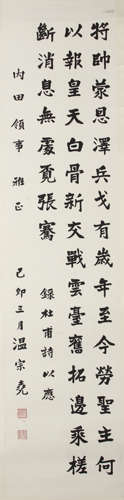 將帥蒙恩澤兵戈有歲年至今勞聖主何
以報皇天白骨新交戰雲臺舊拓邊乘槎
斷消息無處覓張騫
錄杜甫詩以應
內田領事 雅正
己卯三月溫宗堯